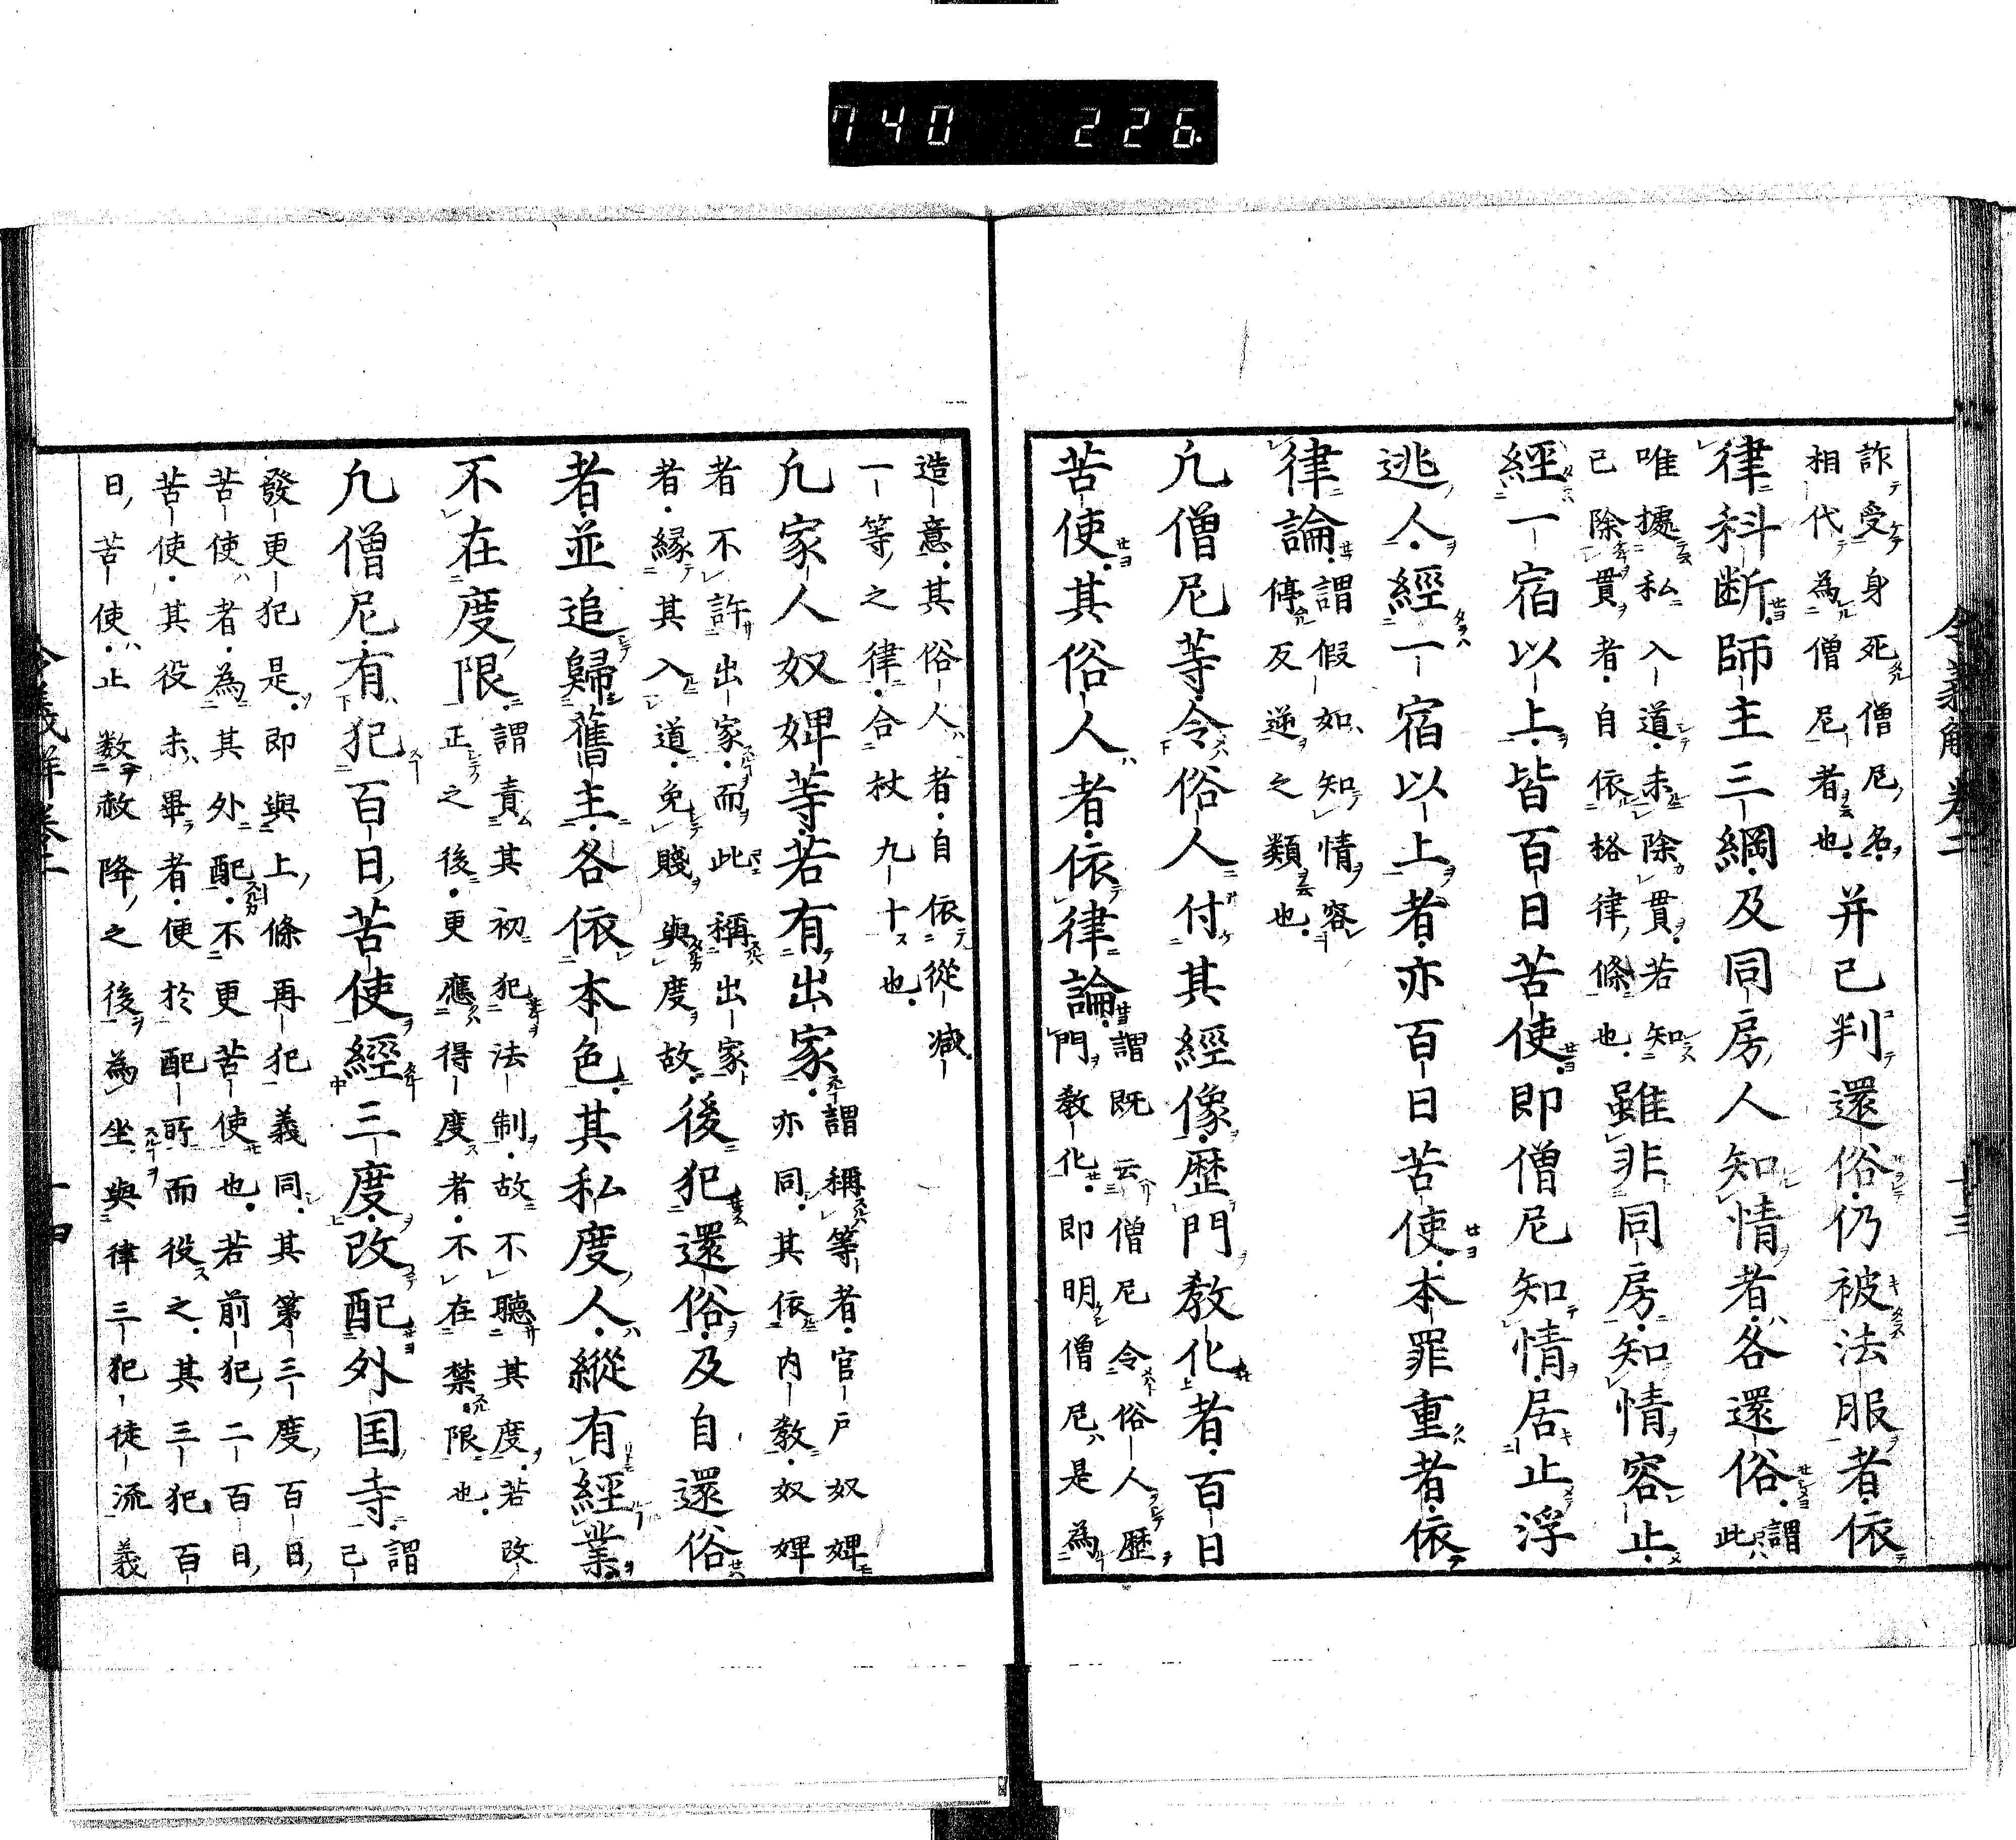 740 226
令義解巻二 廿三
詐受身死僧尼名
相代為僧尼者也
并已判還俗仍被法服者依
律科断師主三綱及同房人知情者各還俗
謂
此
唯據私入道未除貫若知
已除貫者自依格律條也
雖非同房知情容止
經一宿以上皆百日苦使即僧尼知情居止浮
逃人經一宿以上者亦百日苦使本罪重者依
律論
謂假如知情容
停反逆之類也
凢僧尼等令俗人付其經像歴門教化者百日
苦使其俗人者依律論
謂既云僧尼令俗人歴
門教化即明僧尼是為
造意其俗人者自依從減
一等之律合杖九十也
凢家人奴婢等若有出家
謂稱等者官戸奴婢
亦同其依内教奴婢
者不許出家而此稱出家
者縁其入道免賤與度故
後犯還俗及自還俗
者並追歸舊主各依本色其私度人縱有經業
不在度限
謂責其初犯法制故不聽其度若改
正之後更應得度者不在禁限也
凢僧尼有犯百日苦使經三度改配外国寺
謂
已
發更犯是即與上條再犯義同其第三度百日
苦使者為其外配不更苦使也若前犯二百日
苦使其役未畢者便於配所而役之其三犯百
日苦使止数赦降之後為坐與律三犯徒流義
令義解巻二